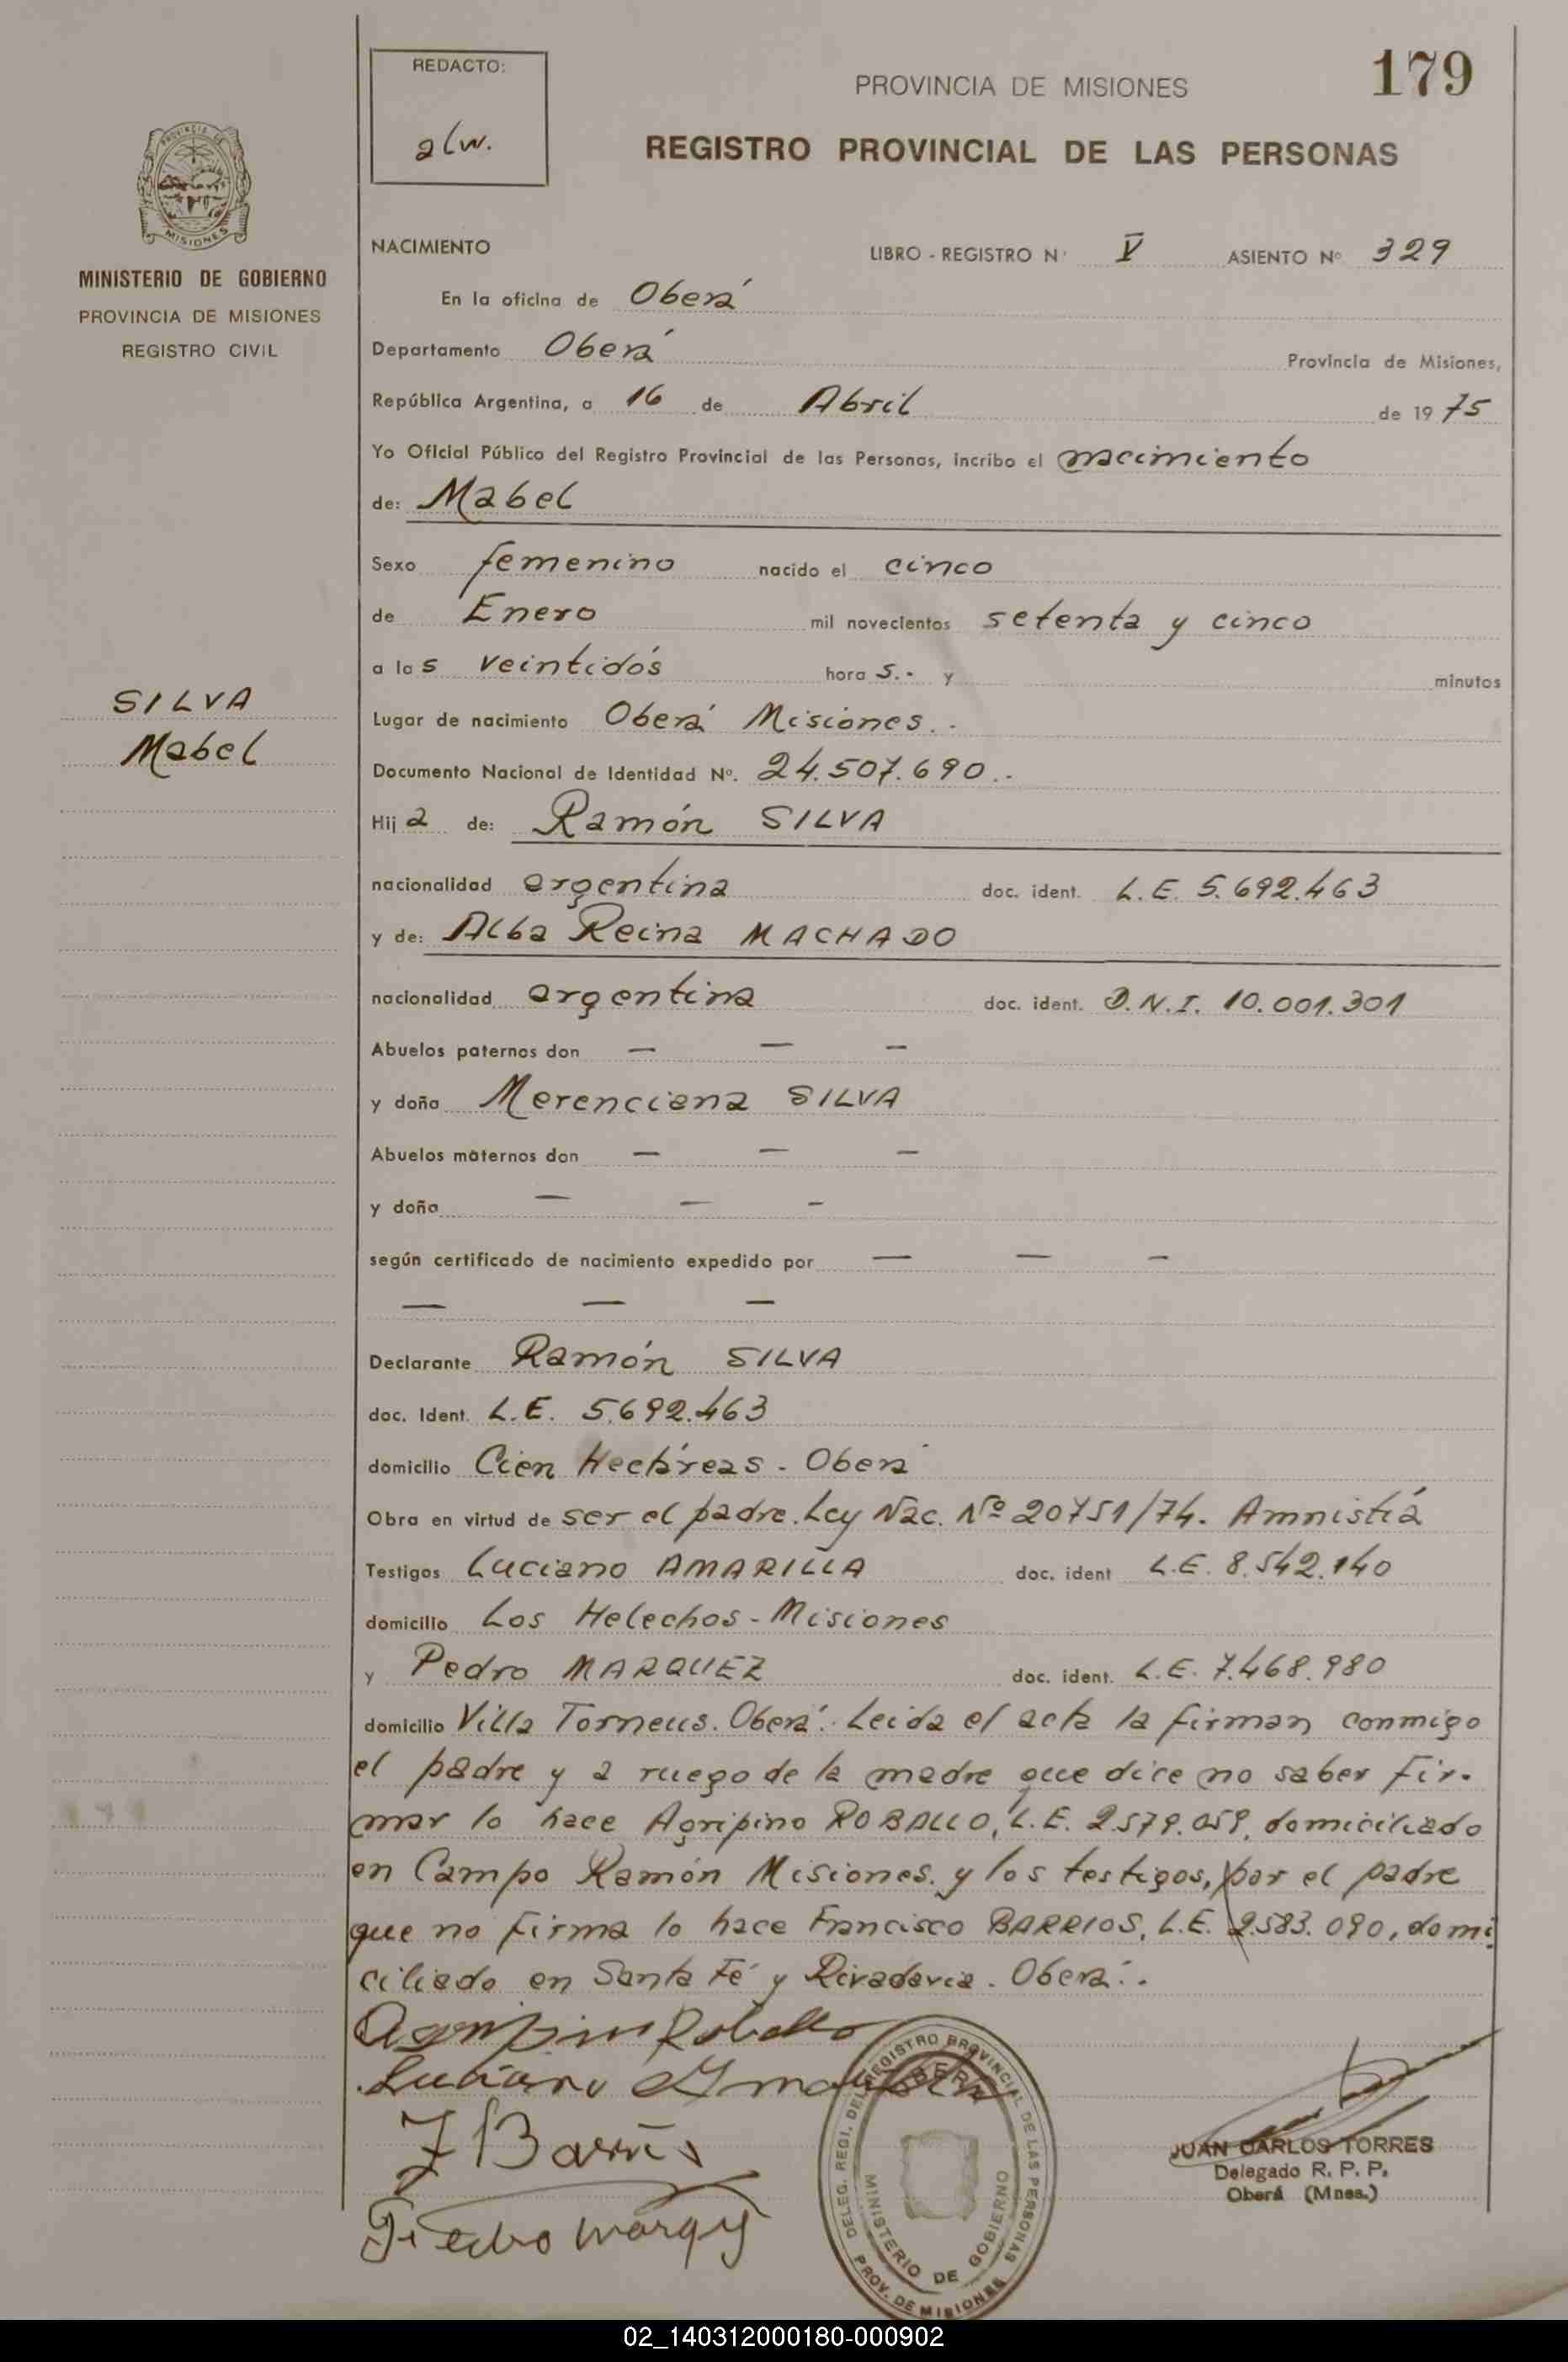 REDACTO:
alw.
179
PROVINCIA DE MISIONES
REGISTRO PROVINCIAL DE LAS PERSONAS
MISIONES
MINISTERIO DE GOBIERNO
PROVINCIA DE MISIONES
REGISTRO CIVIL
SILVA
Mabel
NACIMIENTO LIBRO - REGISTRO Nº V ASIENTO Nº 329
En la oficina de Oberá
Departamento Oberá Provincia de Misiones,
República Argentina, a 16 de Abril de 1975
Yo Oficial Público del Registro Provincial de las Personas, incribo el nacimiento
de: Mabel
Sexo femenino nacido el cinco
de Enero mil novecientos setenta y cinco
a las veintidós horas.- y minutos
Lugar de nacimiento Oberá Misiones.-
Documento Nacional de Identidad Nº. 24.507.690.-
Hija de: Ramón SILVA
nacionalidad argentina doc. ident. L.E. 5.692.463
y de: Alba Reina MACHADO
nacionalidad argentina doc. ident. D.N.I. 10.001.301
Abuelos paternos don — — -
y doña Merenciana SILVA
Abuelos maternos don — — -
y doña — — -
según certificado de nacimiento expedido por — — -
— — —
Declarante Ramón SILVA
doc. Ident. L.E. 5.692.463
domicilio Cien Hectáreas - Oberá
Obra en virtud de ser el padre. Ley Nac. Nº 20751/74. Amnistía
Testigos Luciano AMARILLA doc. ident L.E. 8.542.140
domicilio Los Helechos - Misiones
y Pedro MARQUEZ doc. ident. L.E. 7.468.980
domicilio Villa Torneus. Oberá. Leida el acta la firman conmigo
el padre y a ruego de la madre que dice no saber fir-
mar lo hace Agripino ROBALLO, L.E. 2.579.059, domiciliado
en Campo Ramón Misiones. y los testigos, por el padre
que no firma lo hace Francisco BARRIOS, L.E. 2.583.090, domi
ciliado en Santa Fé y Rivadavia. Oberá.-
Agripino Roballo
Luciano Amarilla
F Barrios
Pedro Marquez
DELEG. REGI. DEL REGISTRO PROVINCIAL DE LAS PERSONAS
OBERA
MINISTERIO DE GOBIERNO
PROV. DE MISIONES
JUAN CARLOS TORRES
Delegado R. P. P.
Oberá (Mnes.)
02_140312000180-000902